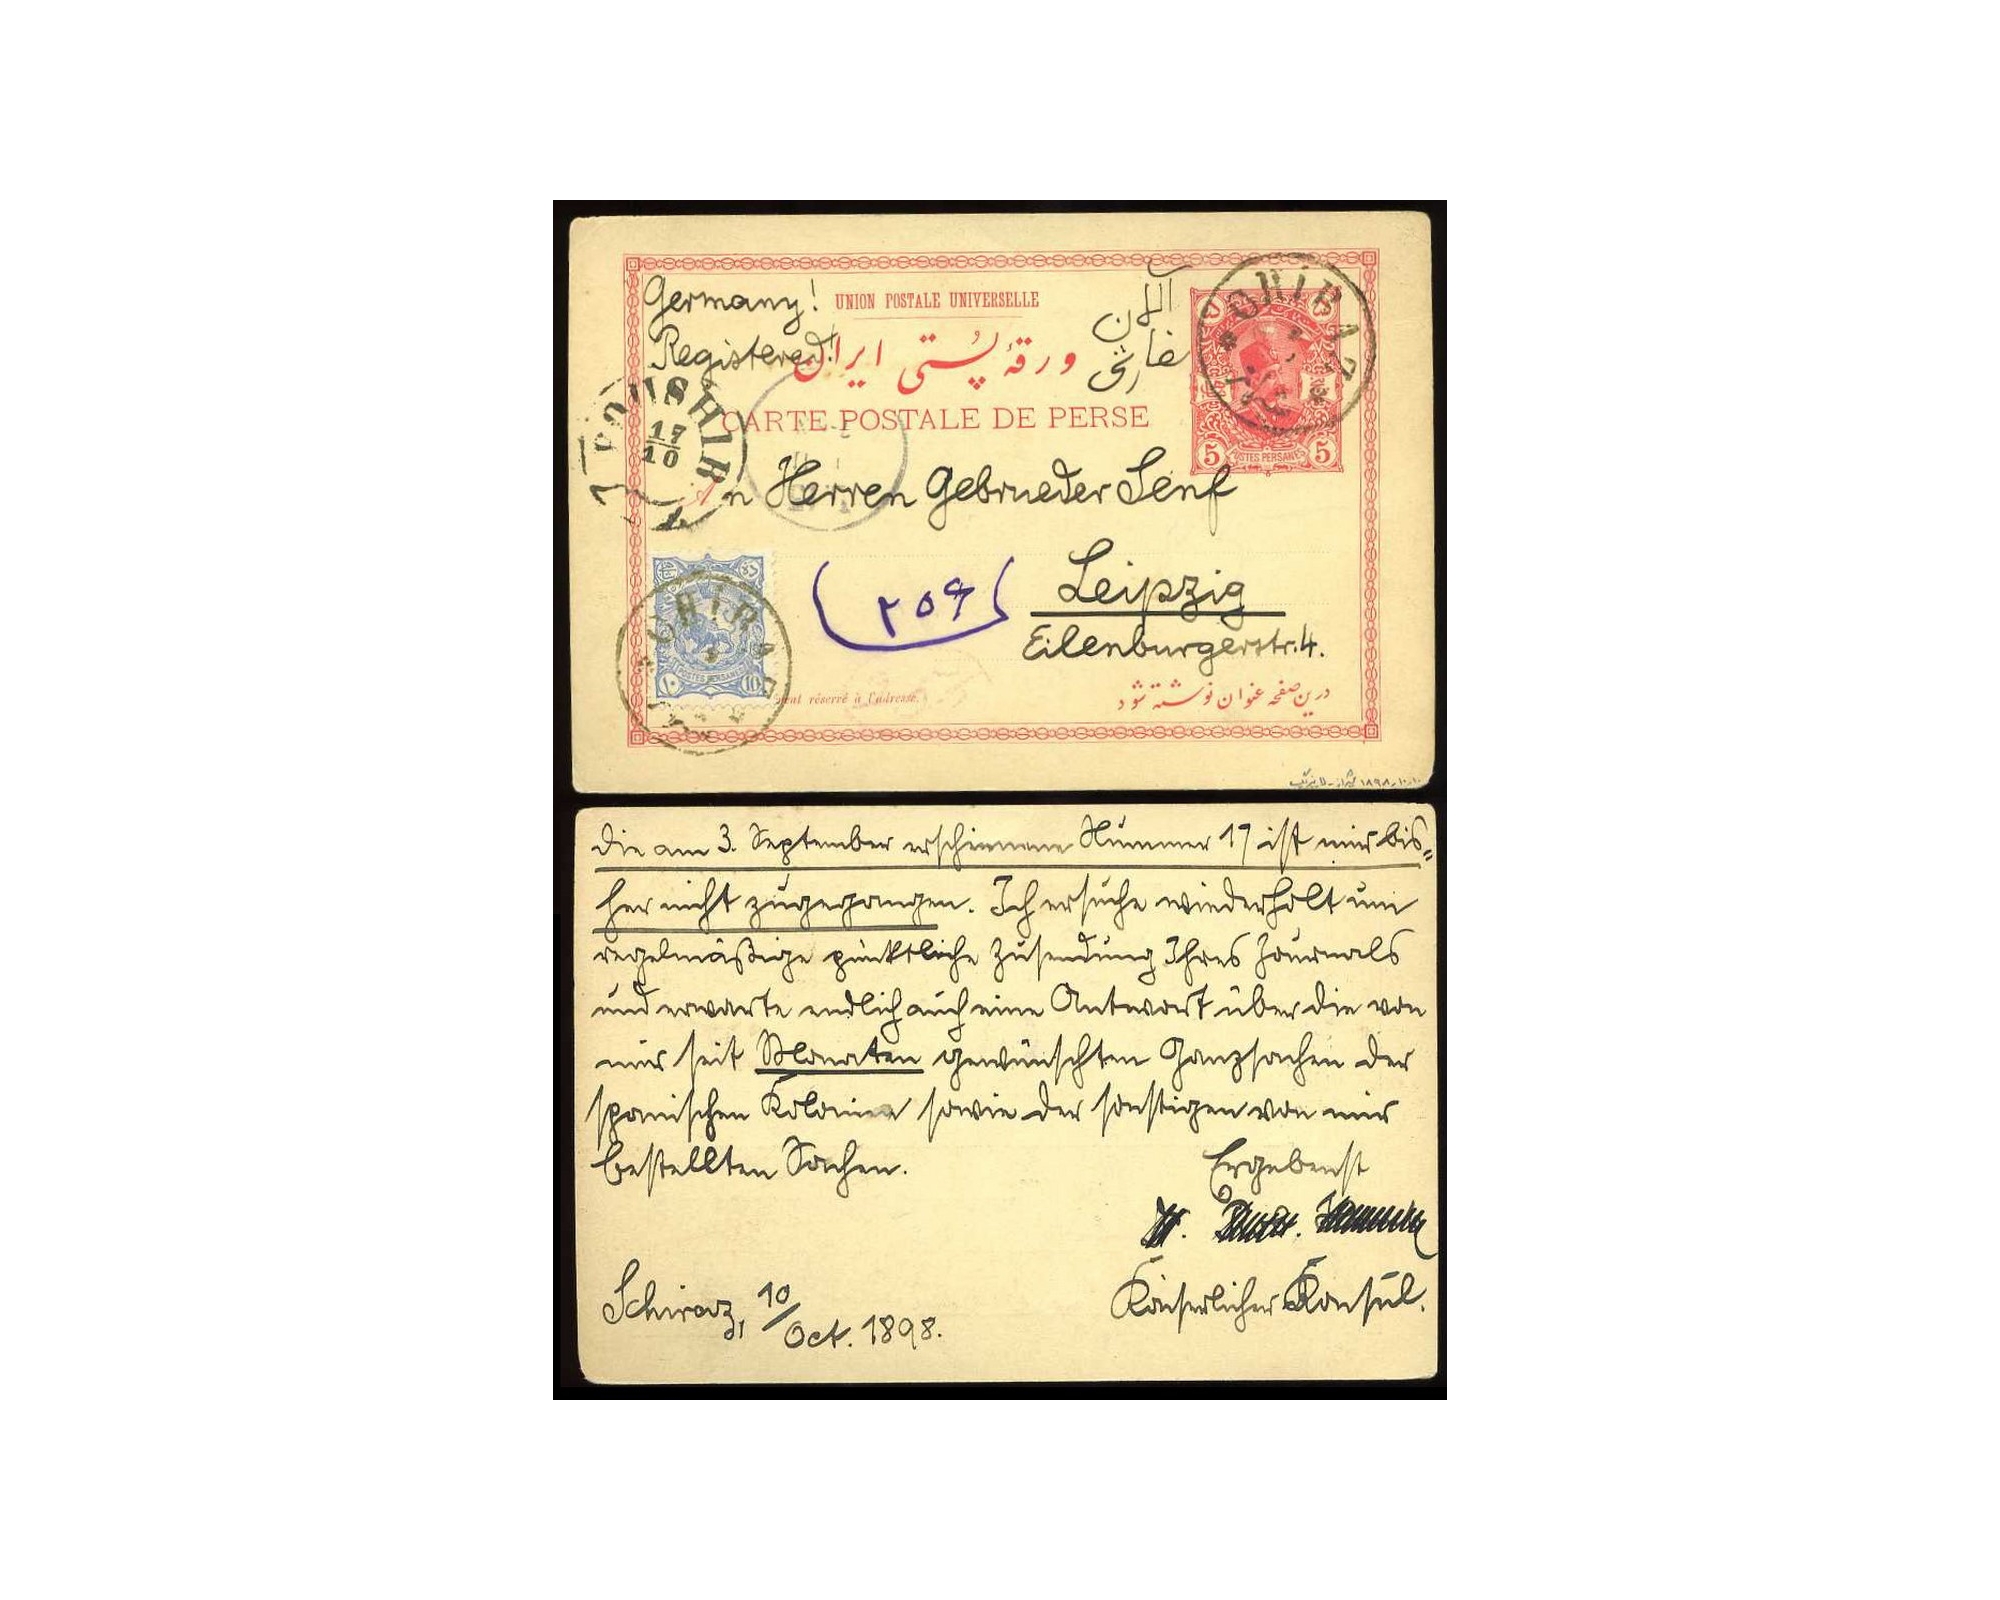 Germany!
UNION POSTALE UNIVERSELLE
آلمان
Registered!
ورقهٔ پُستی ایران
سفارشی
CHIRAZ
BOUSHIR
17
10
CARTE POSTALE DE PERSE
5 POSTES PERSANES 5
An Herren Gebrueder Senf
(۲۵۹)
Leipzig
Eilenburgerstr. 4.
CHIRAZ
POSTES PERSANES
۱۰ 10
réservé à l'adresse.
درین صفحه عنوان نوشته شود
۱۸۹۸-۱۰-۱۰ شیراز - لایپزیگ
Die am 3. September erschienene Nummer 17 ist mir bis=
her nicht zugegangen. Ich ersuche wiederholt um
regelmäßige pünktliche Zusendung Ihres Journals
und erwarte endlich auch eine Antwort über die von
mir seit Monaten gewünschten Ganzsachen der
spanischen Kolonien sowie der sonstigen von mir
bestellten Sachen.
Ergebenst
Kaiserlicher Konsul.
Schiraz, 10/Oct. 1898.